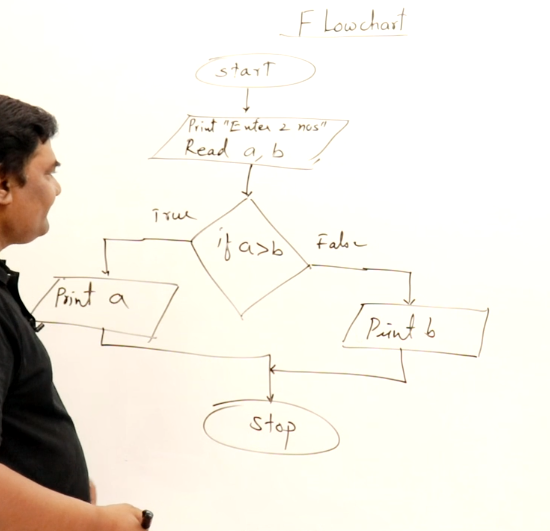 Flowchart
start
Print "Enter 2 nos"
Read a, b
True
if a>b
False
Print a
Print b
stop